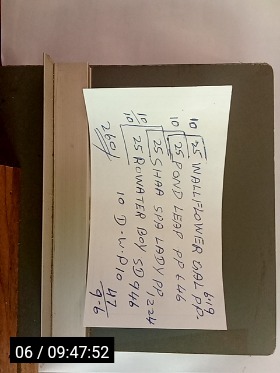 10 25 WALLFLOWER GAL PP. 649
10 25 POND LEAP PP 646
25 SHAA SPA LADY PP, 224
10 25 ROWATER BOY SD 946
10 D.W.P 10
260/
47
9-6
06 / 09:47:52